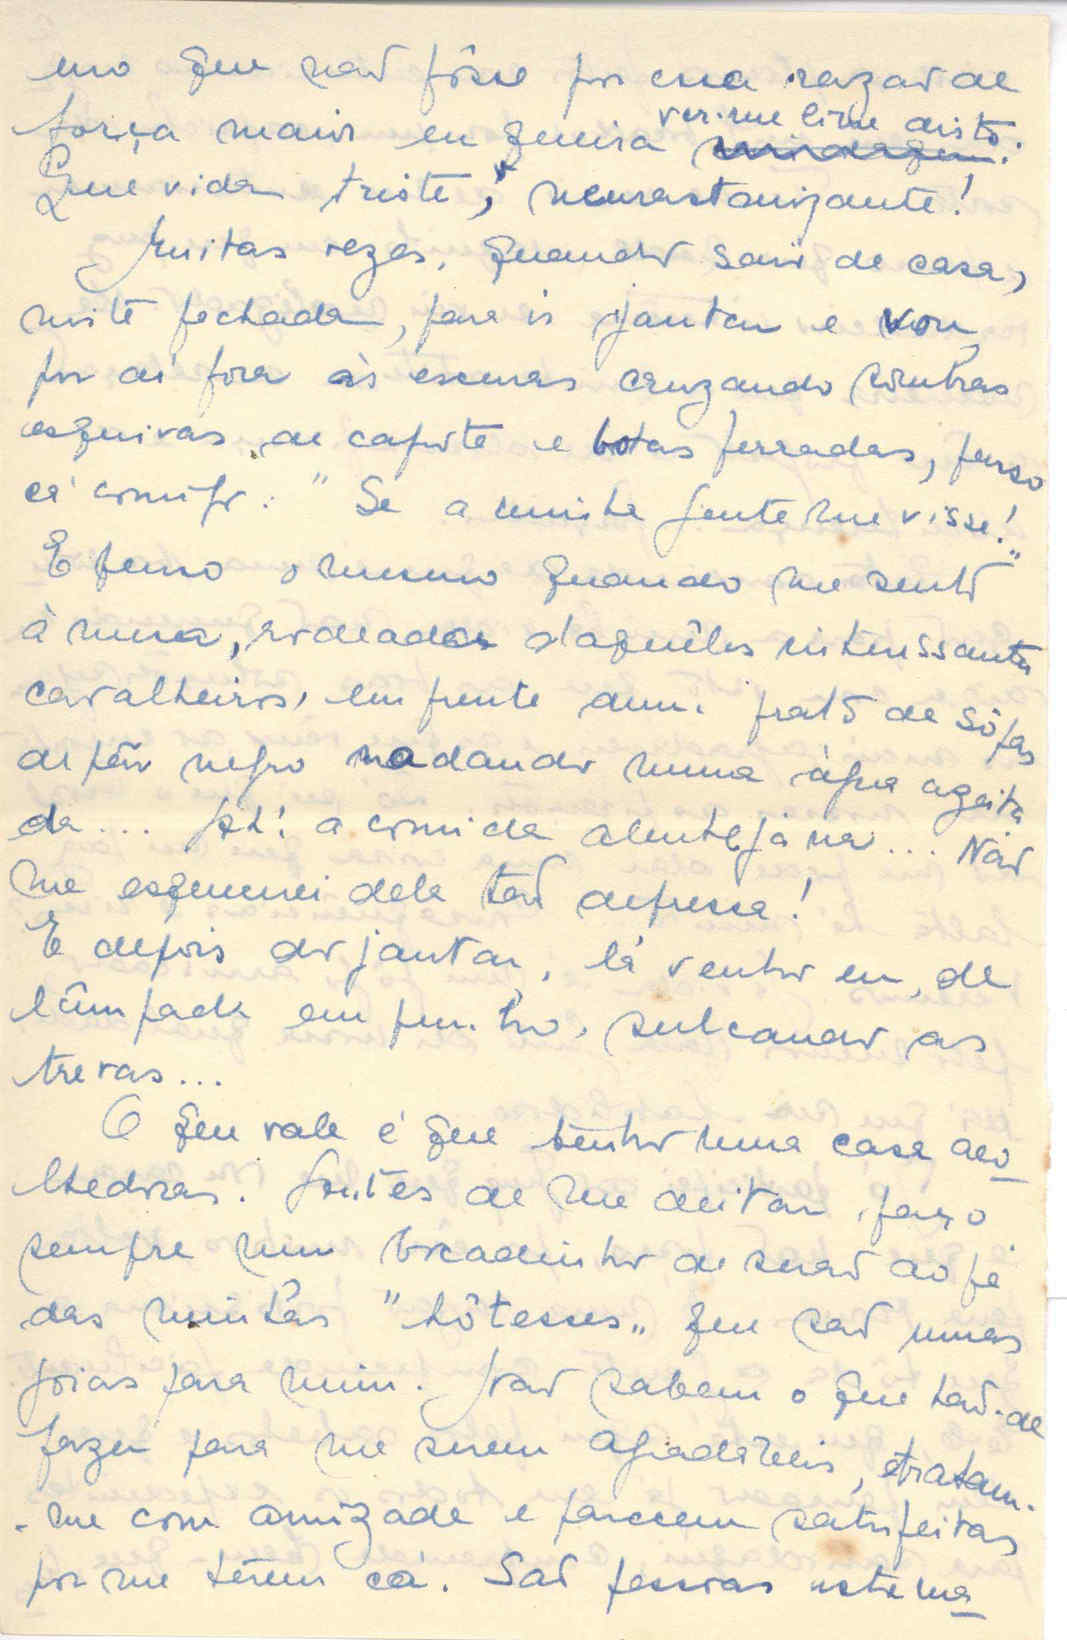 mo que não fôsse por essa razão de
fôrça maior eu queria ver-me livre disto.
Que vida triste, neurastenizante!
Muitas vezes, quando saio de casa,
noite fechada, para ir jantar e vou,
por aí fora às escuras cruzando sombras
esquivas de capote e botas ferradas, penso
cá comigo: "Se a minha gente me visse!"
E penso o mesmo quando me sento
à mesa, rodeada daquêles interessantes
cavalheiros, em frente dum prato de sôpas
de pão negro nadando numa água azeita
da... Ah! a comida alentejana... Não
me esquecerei dela tão depressa!
E depois do jantar, lá venho eu, de
lâmpada em punho, sulcando as
trevas...
O que vale é que tenho uma casa aco-
lhedora. Antes de me deitar, faço
sempre um bocadinho de serão ao pé
das minhas "hôtesses" que são umas
joias para mim. Não sabem o que hão-de
fazer para me serem agradáveis, tratam-
-me com amizade e parecem satisfeitas
por me terem cá. São pessoas estima-